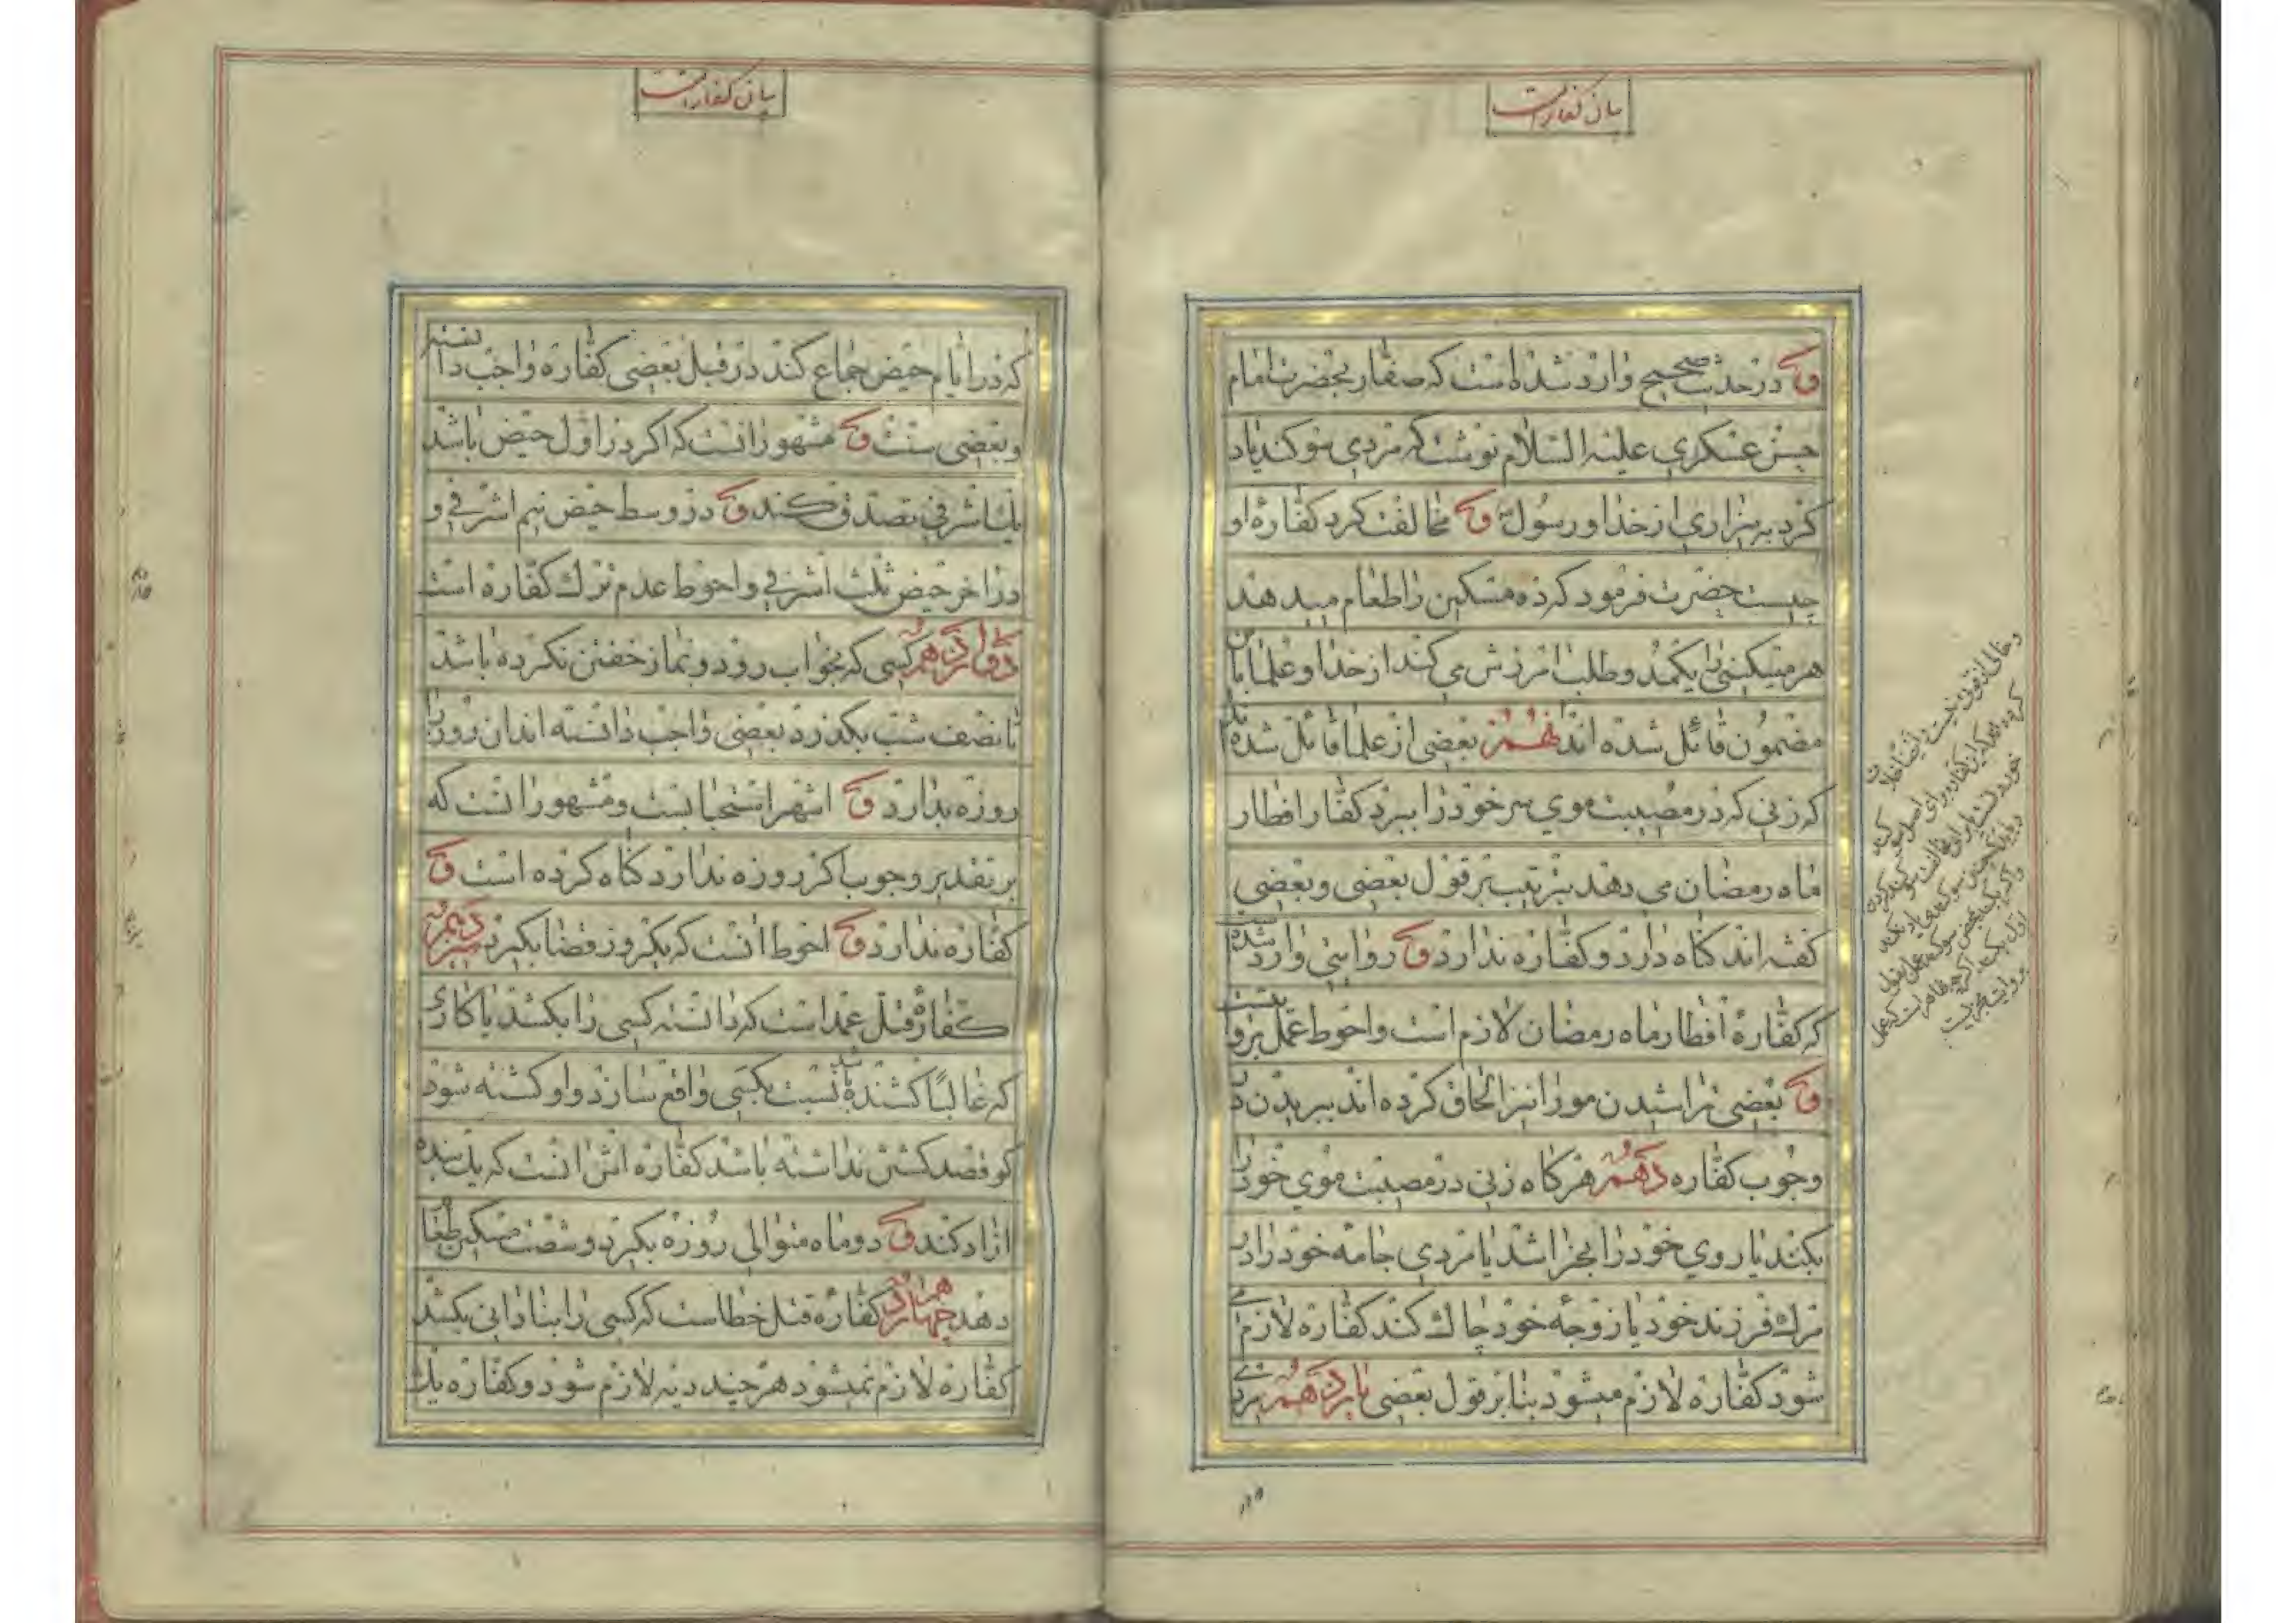 بیان کفارات
و در حدیث صحیح وارد شده است که صفار بحضرت امام
حسن عسکری علیه السلام نوشت که مردی سوکند یاد
کرد به بیزاری از خدا و رسول و مخالفت کرد کفاره او
چیست حضرت فرمود که ده مسکین را طعام میدهد
هر مسکینی را یکمد و طلب امرزش می کند از خدا و علما باین
مضمون قائل شده اند نهم بعضی از علما قائل شده اند
که زنی که در مصیبت موی سر خود را ببرد کفار افطار
ماه رمضان می دهد بترتیب بر قول بعضی و بعضی
کفته اند کناه دارد و کفاره ندارد و روایتی وارد شده
که کفارهٔ افطار ماه رمضان لازم است و احوط عمل بروایتست
و بعضی تراشیدن مو را نیز الحاق کرده اند ببریدن در
وجوب کفاره دهم هر کاه زنی در مصیبت موی خود را
بکند یا روی خود را بخراشد یا مردی جامه خود را در
مرک فرزند خود یا زوجه خود چاک کند کفاره لازم می
شود کفاره لازم میشود بنا بر قول بعضی یازدهم
بیان کفارات
که در ایام حیض جماع کند در قبل بعضی کفاره واجب دانسته
و بعضی سنت و مشهور انست که اکر در اول حیض باشد
یک اشرفی تصدق کند و در وسط حیض نیم اشرفی و
در اخر حیض ثلث اشرفی و احوط عدم ترک کفاره است
دوازدهم کسی که بخواب رود و نماز خفتن نکرده باشد
تا نصف شب بکذرد بعضی واجب دانسته اند ان روز را
روزه بدارد و اشهر استحبابست و مشهور انست که
بر تقدیر وجوب اکر روزه ندارد کناه کرده است و
کفاره ندارد و احوط انست که یکروز قضا بکیرد سیزدهم
کفارهٔ قتل عمد است که دانسته کسی را بکشد یا کاری
که غالبًا کشنده باشد نسبت بکسی واقع سازد و او کشته شود
کو قصد کشتن نداشته باشد کفاره اش انست که یک بنده
ازاد کند و دو ماه متوالی روزه بکیرد و شصت مسکین طعام
دهد چهاردهم کفارهٔ قتل خطاست که کسی را بنادانی بکشد
کفاره لازم نمیشود هر چند دیه لازم شود و کفاره یک